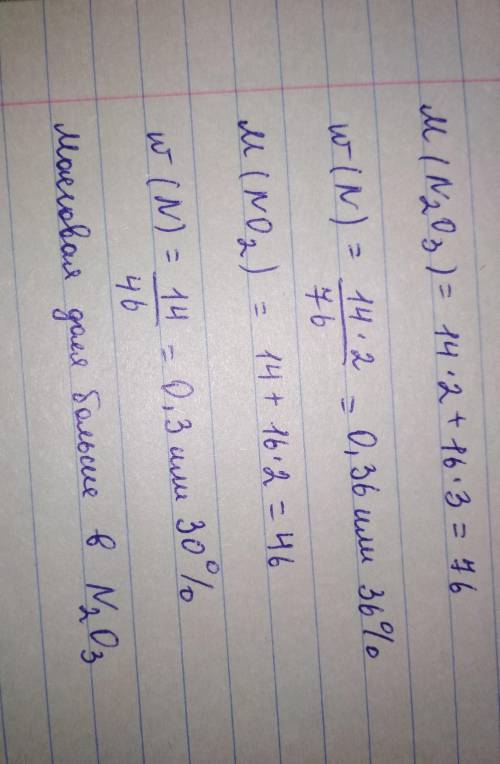 M(N₂O₃) = 14·2 + 16·3 = 76
w(N) = 14·2/76 = 0,36 или 36%
M(NO₂) = 14 + 16·2 = 46
w(N) = 14/46 = 0,3 или 30%
Массовая доля больше в N₂O₃